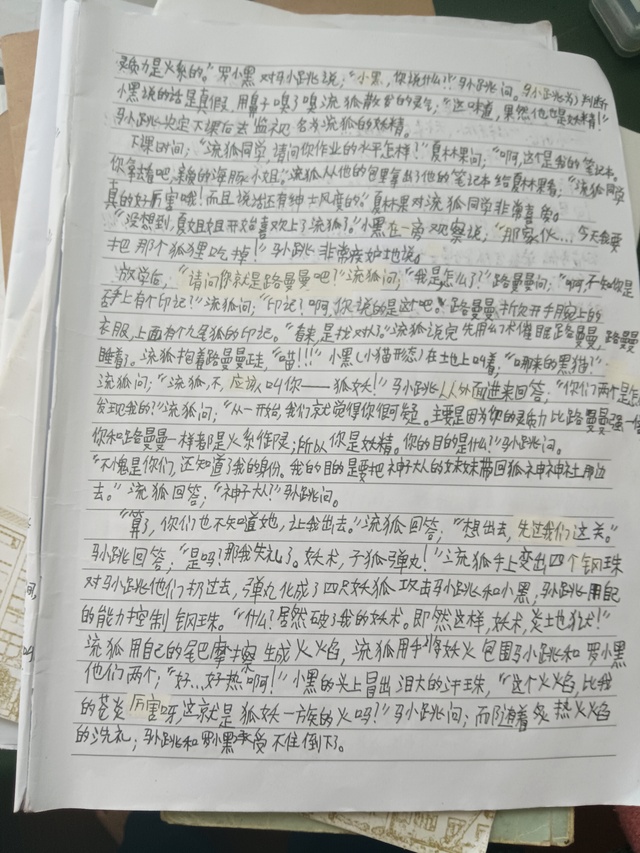 灵质力是火系的。”罗小黑对马小跳说；“小黑，你说什么！”马小跳问。马小跳为了判断
小黑说的话是真假，用鼻子嗅了嗅流狐散发的灵气；“这味道，果然他也是妖精！”
马小跳决定下课后去监视名为流狐的妖精。
下课时间；“流狐同学，请问你作业的水平怎样？”夏林果问；“啊，这个是我的笔记本。
你拿去吧，美丽的海豚小姐。”流狐从他的包里拿出了他的笔记本给夏林果看；“流狐同学
真的好厉害哦！而且说话还有绅士风度的。”夏林果对流狐同学非常喜爱。
“没想到，夏姐姐开始喜欢上了流狐了。”小黑在一旁观察说；“那家伙…今天我要
把那个狐狸吃掉！”马小跳非常疾妒地说。
放学后，“请问你就是路曼曼吧？”流狐问；“我是，怎么了？”路曼曼问；“啊，不知你是
否手上有个印记？”流狐问；“印记？啊，你说的是这吧。”路曼曼拆开手腕上的
衣服，上面有个九尾狐的印记。“看来，是找对了。”流狐说完先用幻术催眠路曼曼，路曼曼
睡着了。流狐抱着路曼曼走，“喵！！！”小黑（小猫形态）在土地上叫着；“哪来的黑猫？”
流狐问；“流狐，不，应该叫你——狐妖！”马小跳从外面进来回答；“你们两个是怎
发现我的？”流狐问；“从一开始，我们就觉得你很可疑。主要是因为你的灵质力比路曼曼强一倍
你和路曼曼一样都是火系御限；所以你是妖精。你的目的是什么？”马小跳问。
“不愧是你们，还知道了我的身份。我的目的是要把神子大人的妹妹带回狐神神社那边
去。”流狐回答；“神子大人？”马小跳问。
“算了，你们也不知道她，让我出去。”流狐回答；“想出去，先过我们这关。”
马小跳回答；“是吗？那我失礼了。妖术，子狐弹丸！”流狐手上变出四个钢珠
对马小跳他们扔过去，弹丸化成了四只妖狐攻击马小跳和小黑，马小跳用自己
的能力控制钢珠。“什么？居然破了我的妖术。即然这样，妖术，炎土地狱！”
流狐用自己的尾巴摩擦生成火焰，流狐用手将妖火包围马小跳和罗小黑
他们两个；“好…好热啊！”小黑的头上冒出泪大的汗珠，“这个火焰，比我
的苍炎厉害呀，这就是狐妖一方族的火吗！”马小跳问；而随着炙热火焰
的洗礼；马小跳和罗小黑承受不住倒下了。